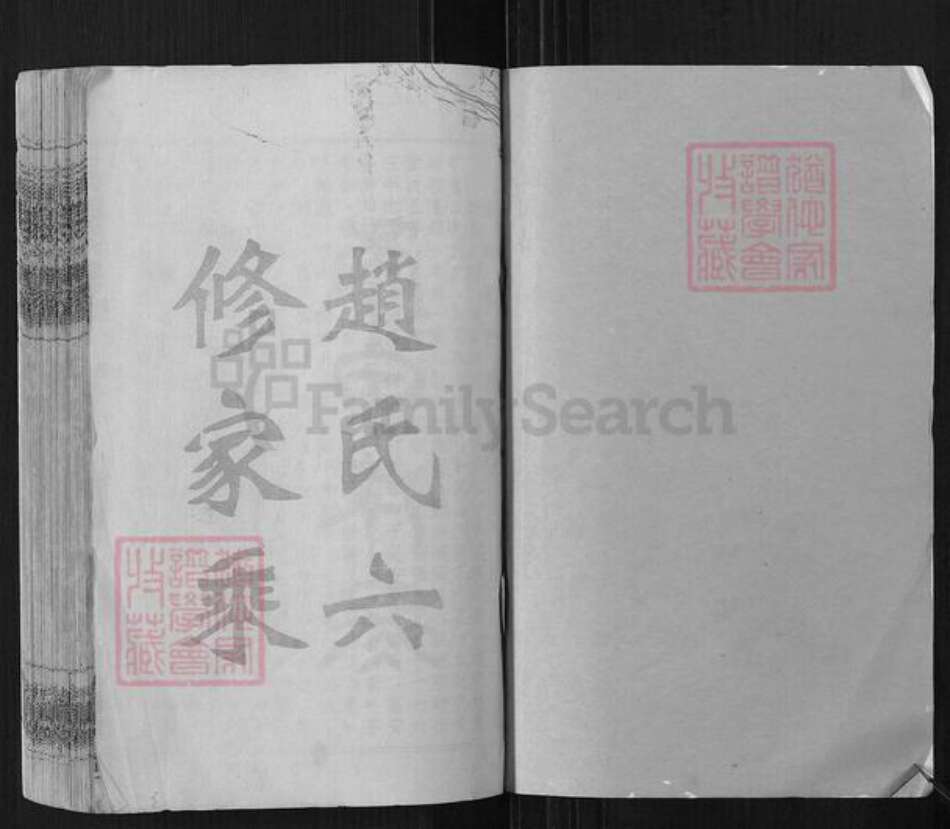 趙氏六
修家乘
猶他家
譜學會
收藏
猶他家
譜學會
收藏
FamilySearch